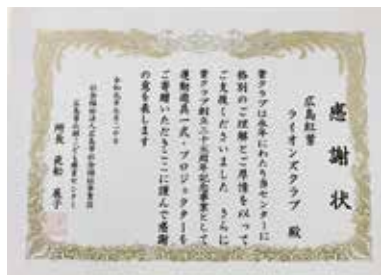 感謝状
広島紅葉
ライオンズクラブ 殿
貴クラブは永年にわたり当センターに
格別のご理解とご厚情を以って
ご支援くださいました さらに
貴クラブ創立二十五周年記念事業として
運動遊具一式・プロジェクターを
ご寄贈いただきここに謹んで感謝
の意を表します
社会福祉法人広島市社会福祉事業団